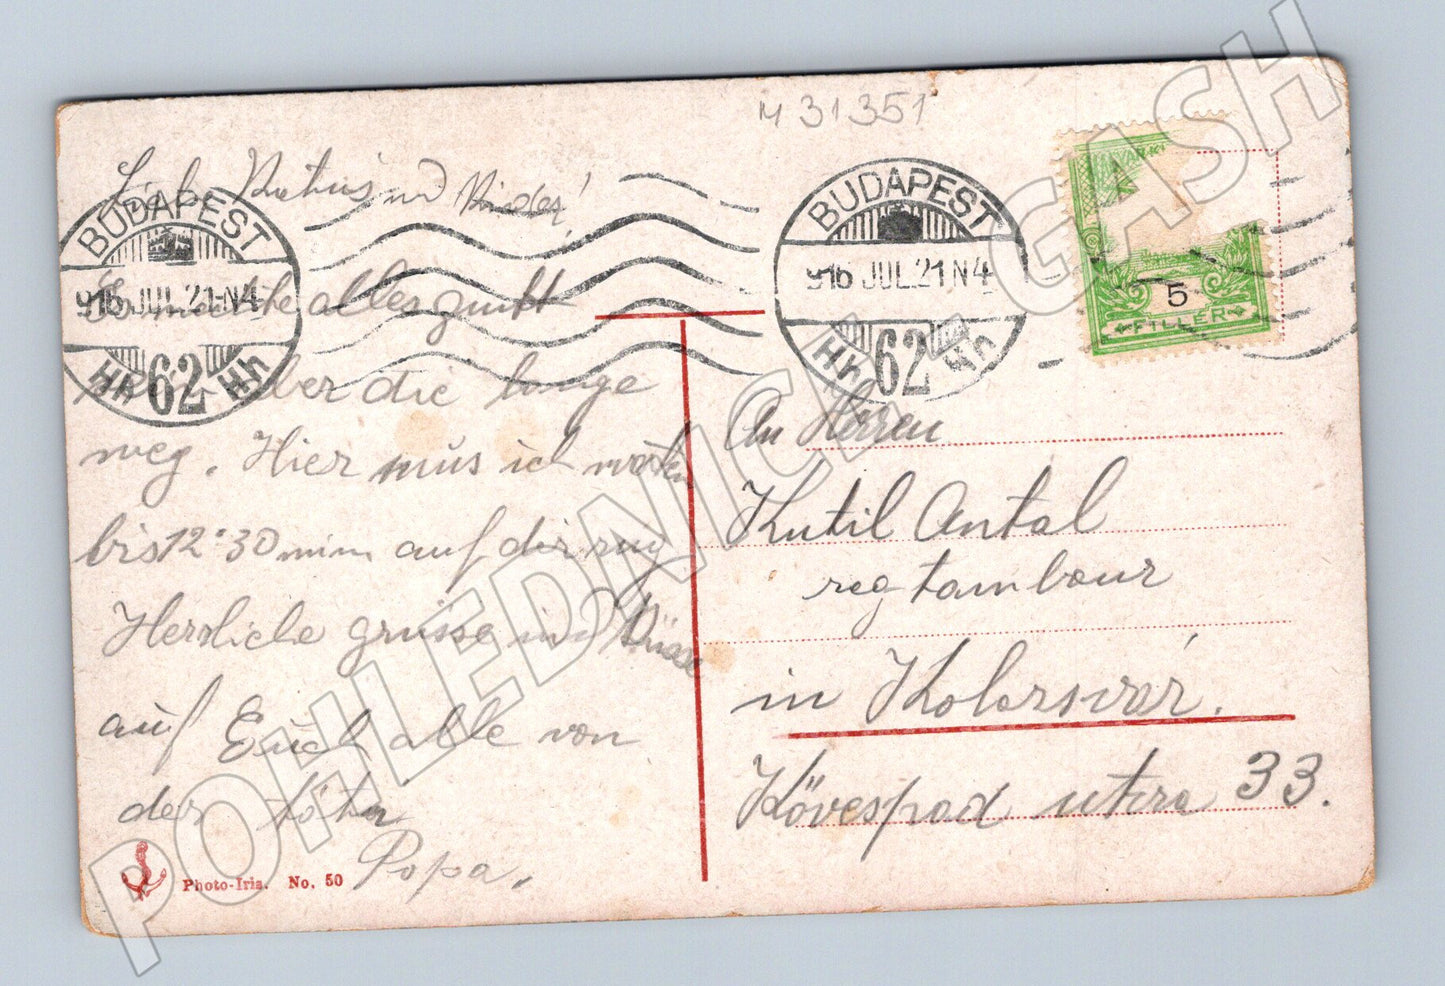 M 31351
Liebe und Kinder!
BUDAPEST
916 JUL.21.N4
62
Hh Hh
alles gutt
über die lange
weg. Hier mus ich warten
bis 12·30 min auf den zug
Herzliche grüsse und Küsse
auf Euch alle von
der
Popa.
Photo-Iris. No. 50
BUDAPEST
916 JUL.21.N4
Hh 62 Hh
5
FILLÉR
An Herren
Kutil Antal
reg tambour
in Kolozsvár.
Kövespad utcza 33.
POHLEDNICE-GASH